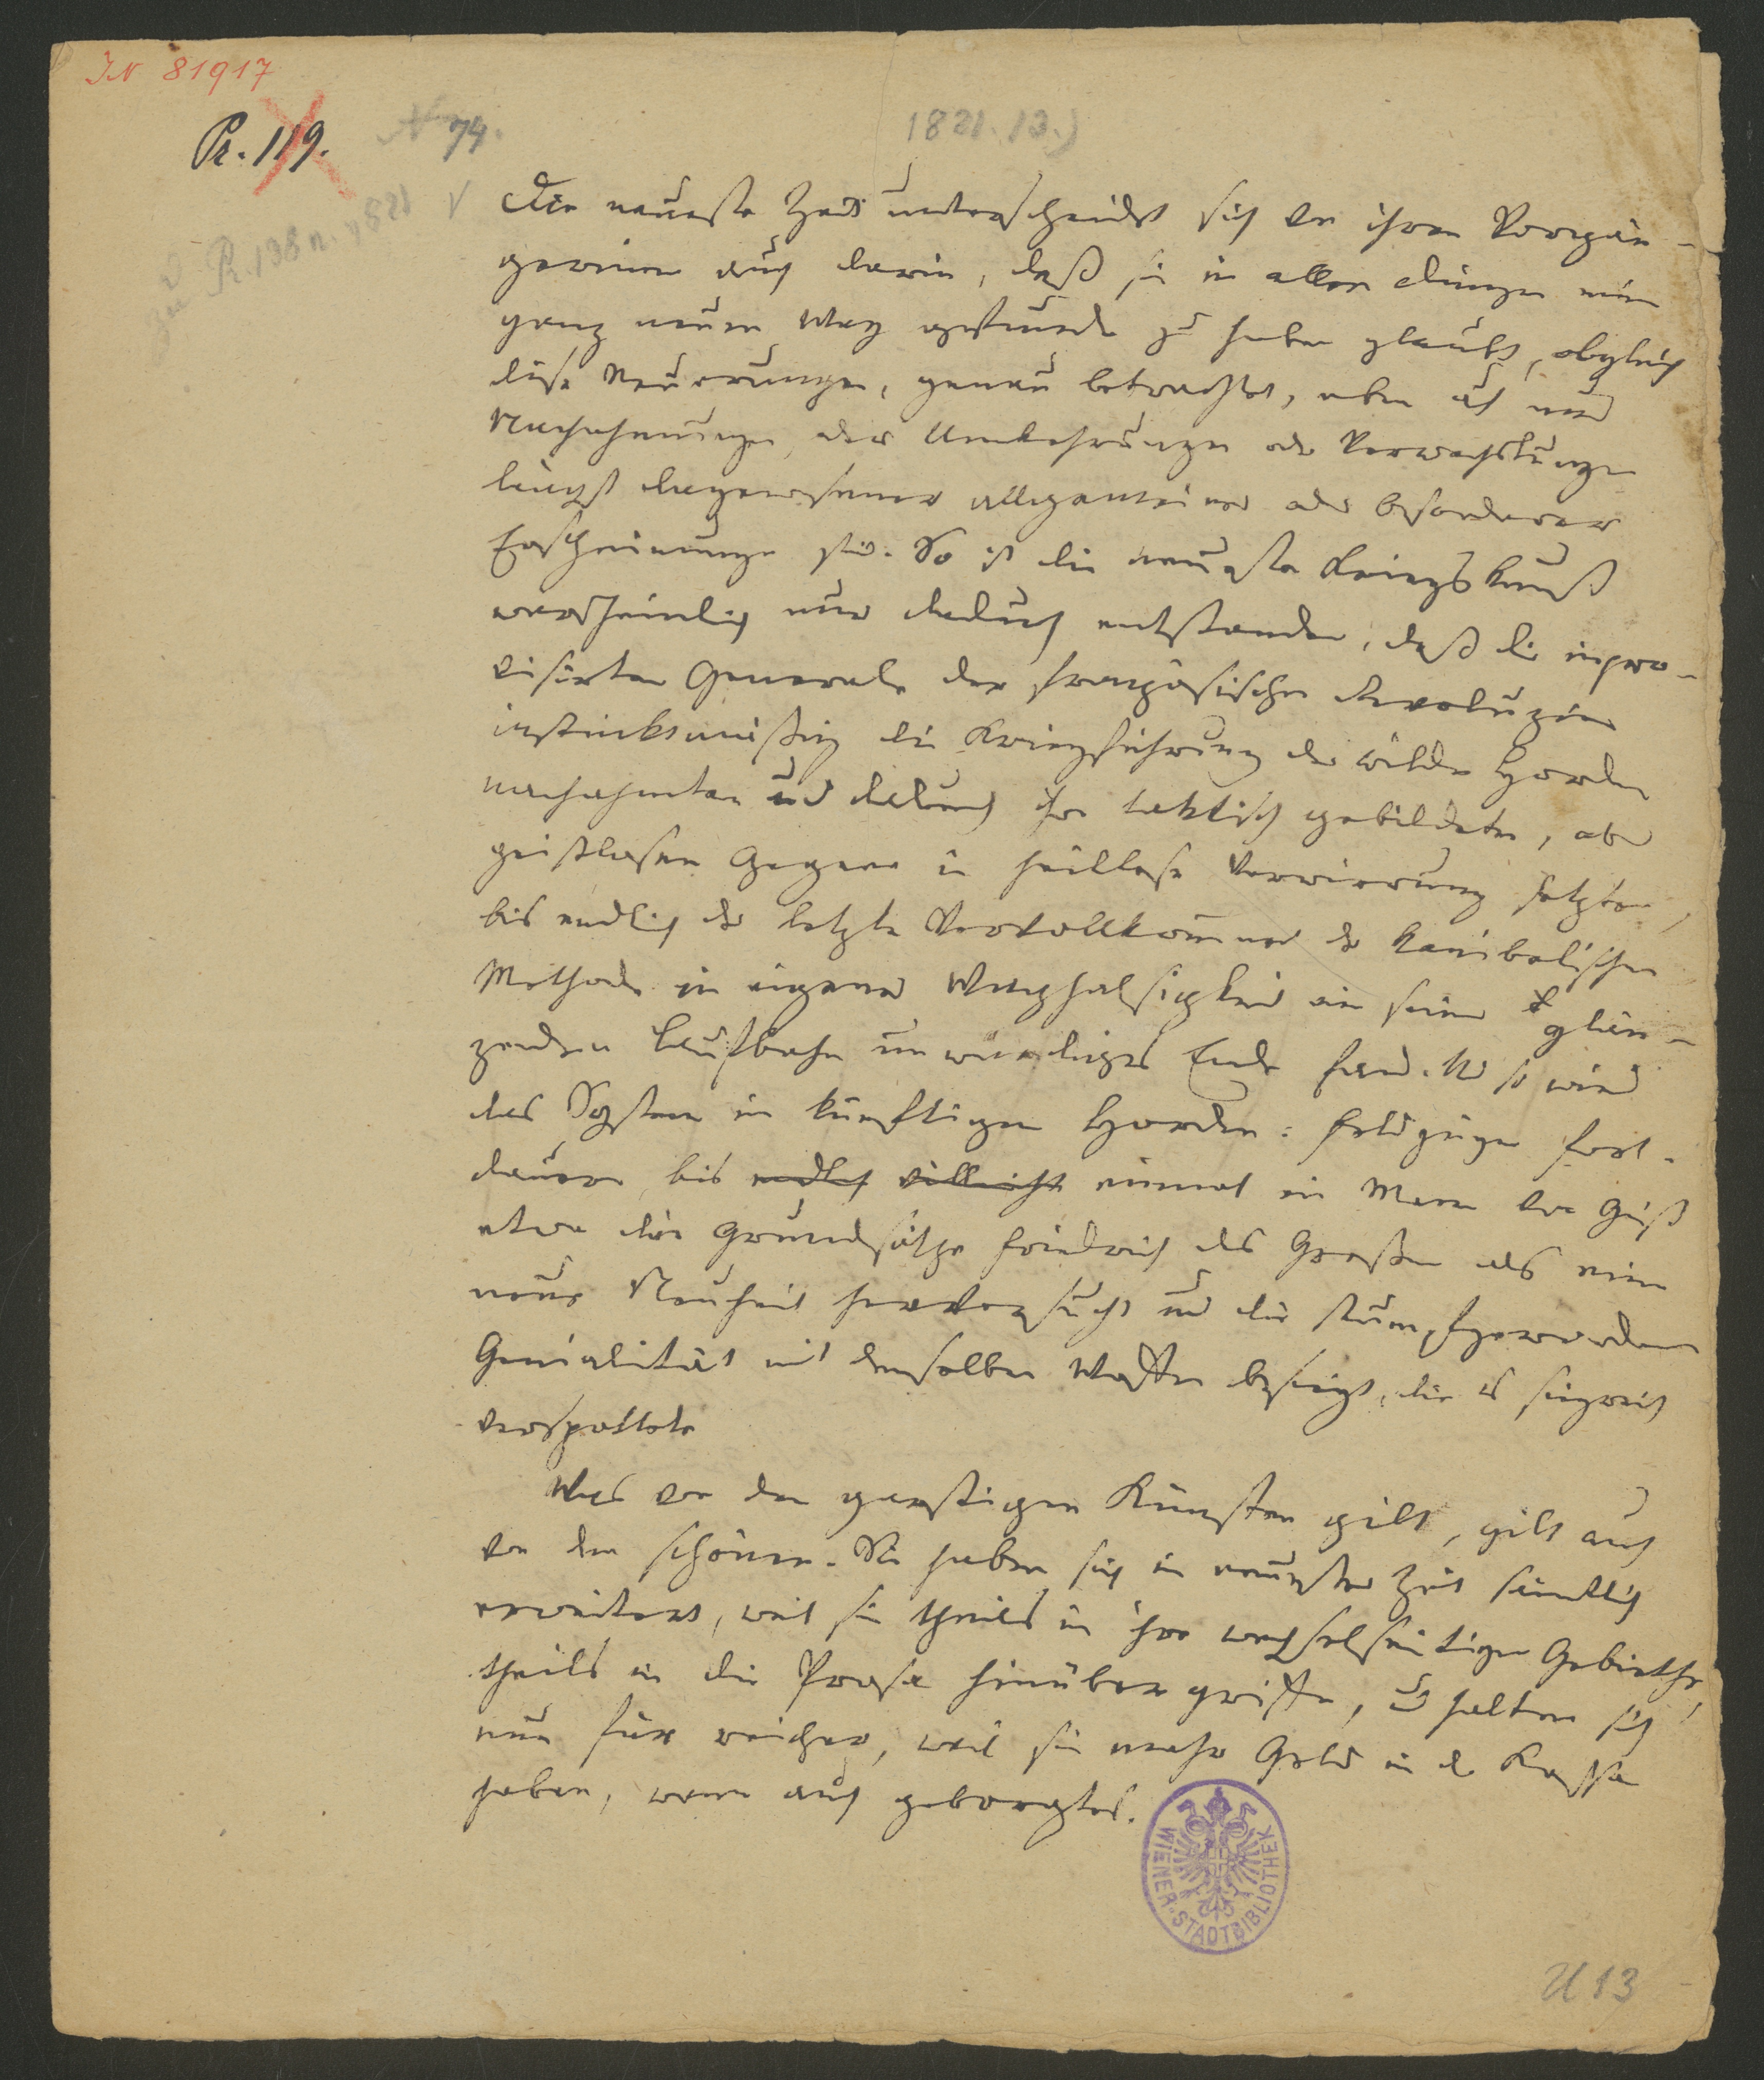 IN 81917
Pr. 119.
N 74.
1821. 13.)
zu Pr. 138 n. 1821 V
Die neueste Zeit unterscheidet sich von ihren Vorgän-
gerinnen auch darin, daß sie in allen Dingen einen
ganz neuen Weg gefunden zu haben glaubt, obgleich
diese Neuerungen, genau betrachtet, eben auch nur
Nachahmungen, oder Umkehrungen oder Verwechslungen
längst dagewesener allgemeiner oder besonderer
Erscheinungen sind. So ist die neueste Kriegskunst
wahrscheinlich nur dadurch entstanden, daß die inpro-
visirten Generale der französischen Revoluzion
instinktmäßig die Kriegführung der wilden Horden
nachahmten und dadurch ihre taktisch gebildeten, aber
geistlosen Gegner in heillose Verwirrung setzten,
bis endlich der letzte Vervollkommner der kanibalischen
Methode in eigener Waghalsigkeit ein seiner glän-
zenden Laufbahn unwürdiges Ende fand. Und so wird
das System in künftigen Horden-Feldzügen fort-
dauern, bis endlich vielleicht einmal ein Mann von Geist
etwa die Grundsätze Friedrich des Großen als eine
neue Neuheit hervorsucht und die stumpfgewordene
Genialität mit denselben Waffen besiegt, die es siegreich
verspottete
Was von den garstigen Künsten gilt, gilt auch
von den schönen. Sie haben sich in neuester Zeit sämtlich
erweitert, weil sie theils in ihre wechselseitigen Gebiethe,
theils in die Prosa hinüber griffen, und halten sich
nun für reicher, weil sie mehr Geld in der Kasse
haben, wenn auch geborgtes.
WIENER-STADTBIBLIOTHEK
U 13